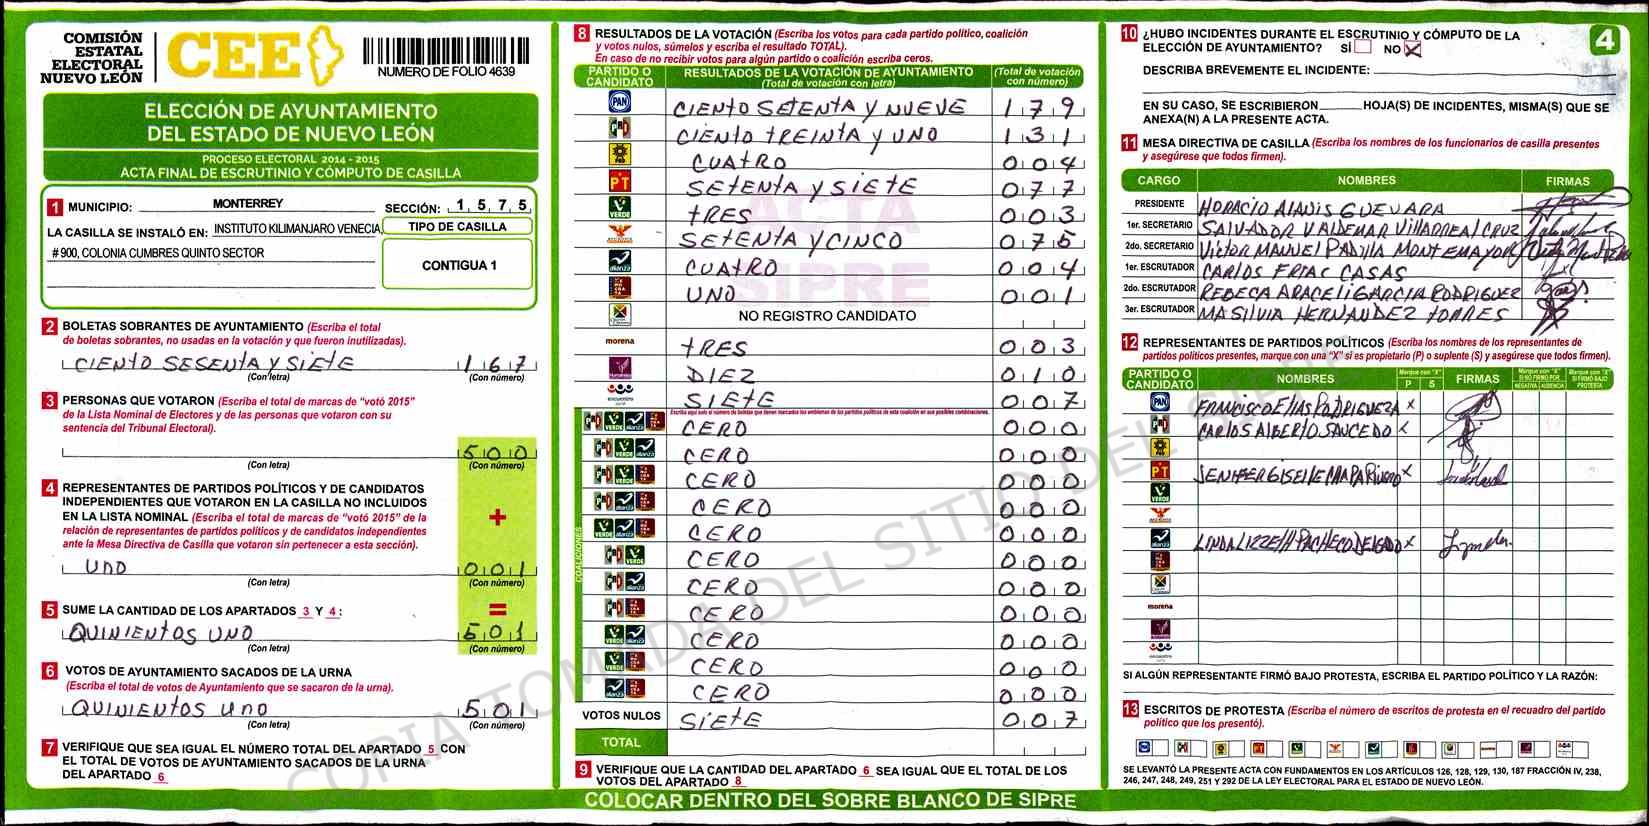 COMISIÓN
ESTATAL
ELECTORAL
NUEVO LEÓN
CEE
NUMERO DE FOLIO 4639
ELECCIÓN DE AYUNTAMIENTO
DEL ESTADO DE NUEVO LEÓN
PROCESO ELECTORAL 2014 - 2015
ACTA FINAL DE ESCRUTINIO Y CÓMPUTO DE CASILLA
1 MUNICIPIO: MONTERREY SECCIÓN: 1 5 7 5
LA CASILLA SE INSTALÓ EN: INSTITUTO KILIMANJARO VENECIA,
# 900, COLONIA CUMBRES QUINTO SECTOR
TIPO DE CASILLA
CONTIGUA 1
2 BOLETAS SOBRANTES DE AYUNTAMIENTO (Escriba el total
de boletas sobrantes, no usadas en la votación y que fueron inutilizadas).
CIENTO SESENTA Y SIETE 1 6 7
(Con letra) (Con número)
3 PERSONAS QUE VOTARON (Escriba el total de marcas de "votó 2015"
de la Lista Nominal de Electores y de las personas que votaron con su
sentencia del Tribunal Electoral).
5 0 0
(Con letra) (Con número)
4 REPRESENTANTES DE PARTIDOS POLÍTICOS Y DE CANDIDATOS
INDEPENDIENTES QUE VOTARON EN LA CASILLA NO INCLUIDOS
EN LA LISTA NOMINAL (Escriba el total de marcas de "votó 2015" de la
relación de representantes de partidos políticos y de candidatos independientes
ante la Mesa Directiva de Casilla que votaron sin pertenecer a esta sección).
+
UNO 0 0 1
(Con letra) (Con número)
5 SUME LA CANTIDAD DE LOS APARTADOS 3 Y 4: =
QUINIENTOS UNO 5 0 1
(Con letra) (Con número)
6 VOTOS DE AYUNTAMIENTO SACADOS DE LA URNA
(Escriba el total de votos de Ayuntamiento que se sacaron de la urna).
QUINIENTOS UNO 5 0 1
(Con letra) (Con número)
7 VERIFIQUE QUE SEA IGUAL EL NÚMERO TOTAL DEL APARTADO 5 CON
EL TOTAL DE VOTOS DE AYUNTAMIENTO SACADOS DE LA URNA
DEL APARTADO 6
8 RESULTADOS DE LA VOTACIÓN (Escriba los votos para cada partido político, coalición
y votos nulos, súmelos y escriba el resultado TOTAL).
En caso de no recibir votos para algún partido o coalición escriba ceros.
PARTIDO O CANDIDATO RESULTADOS DE LA VOTACIÓN DE AYUNTAMIENTO (Total de votación con letra) (Total de votación con número)
PAN CIENTO SETENTA Y NUEVE 1 7 9
PRD CIENTO TREINTA Y UNO 1 3 1
PRD CUATRO 0 0 4
PT SETENTA Y SIETE 0 7 7
VERDE TRES 0 0 3
SETENTA Y CINCO 0 7 5
alianza CUATRO 0 0 4
UNO 0 0 1
NO REGISTRO CANDIDATO
morena TRES 0 0 3
Humanista DIEZ 0 1 0
encuentro social SIETE 0 0 7
Escriba aquí solo el número de boletas que tienen marcados los emblemas de los partidos políticos de esta coalición en sus posibles combinaciones.
COALICIONES
CERO 0 0 0
CERO 0 0 0
CERO 0 0 0
CERO 0 0 0
CERO 0 0 0
CERO 0 0 0
CERO 0 0 0
CERO 0 0 0
CERO 0 0 0
CERO 0 0 0
CERO 0 0 0
VOTOS NULOS SIETE 0 0 7
TOTAL
9 VERIFIQUE QUE LA CANTIDAD DEL APARTADO 6 SEA IGUAL QUE EL TOTAL DE LOS
VOTOS DEL APARTADO 8
COLOCAR DENTRO DEL SOBRE BLANCO DE SIPRE
ACTA
SIPRE
COPIA TOMADA DEL SITIO DEL SIPRE
4
10 ¿HUBO INCIDENTES DURANTE EL ESCRUTINIO Y CÓMPUTO DE LA
ELECCIÓN DE AYUNTAMIENTO? SÍ NO X
DESCRIBA BREVEMENTE EL INCIDENTE:
EN SU CASO, SE ESCRIBIERON HOJA(S) DE INCIDENTES, MISMA(S) QUE SE
ANEXA(N) A LA PRESENTE ACTA.
11 MESA DIRECTIVA DE CASILLA (Escriba los nombres de los funcionarios de casilla presentes
y asegúrese que todos firmen).
CARGO NOMBRES FIRMAS
PRESIDENTE HORACIO ALANIS GUEVARA
1er. SECRETARIO SALVADOR VALDEMAR VILLARREAL CRUZ
2do. SECRETARIO Víctor MANUEL PADILLA MONTEMAYOR
1er. ESCRUTADOR CARLOS FRIAC CASAS
2do. ESCRUTADOR REBECA ARACELI GARCIA RODRIGUEZ
3er. ESCRUTADOR MA SILVIA HERNANDEZ TORRES
12 REPRESENTANTES DE PARTIDOS POLÍTICOS (Escriba los nombres de los representantes de
partidos políticos presentes, marque con una "X" si es propietario (P) o suplente (S) y asegúrese que todos firmen).
PARTIDO O CANDIDATO NOMBRES Marque con "X" P S FIRMAS Marque con "X" SI NO FIRMÓ POR NEGATIVA AUSENCIA Marque con "X" SI FIRMÓ BAJO PROTESTA
PAN FRANCISCO ELIAS RODRIGUEZ A X
CARLOS ALBERTO SAUCEDO X
PT X
VERDE
alianza X
morena
SI ALGÚN REPRESENTANTE FIRMÓ BAJO PROTESTA, ESCRIBA EL PARTIDO POLÍTICO Y LA RAZÓN:
13 ESCRITOS DE PROTESTA (Escriba el número de escritos de protesta en el recuadro del partido
político que los presentó).
SE LEVANTÓ LA PRESENTE ACTA CON FUNDAMENTOS EN LOS ARTÍCULOS 126, 128, 129, 130, 187 FRACCIÓN IV, 238,
246, 247, 248, 249, 251 Y 292 DE LA LEY ELECTORAL PARA EL ESTADO DE NUEVO LEÓN.